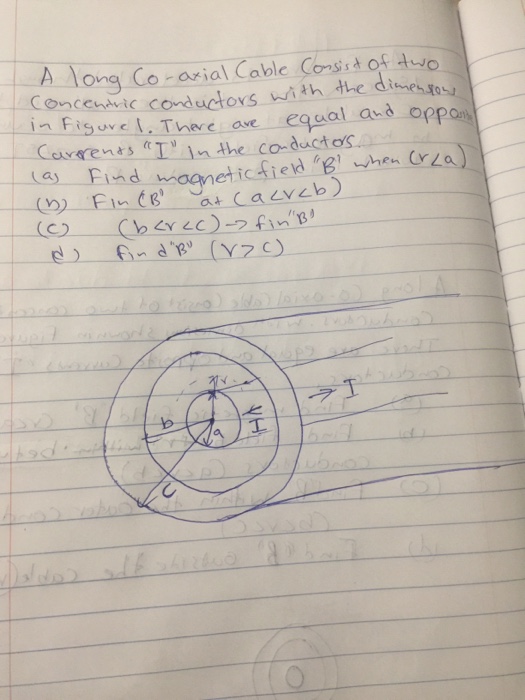 A long Co-axial Cable Consist of two
Concentric conductors with the dimensions
in Figure 1. There are equal and oppos
Currents "I" in the conductors.
(a) Find magnetic field "B" when (r<a)
(b) Fin "B" at (a<r<b)
(c) (b<r<c) → fin "B"
d) find "B" (r>c)
r
→ I
b
a
←
I
c